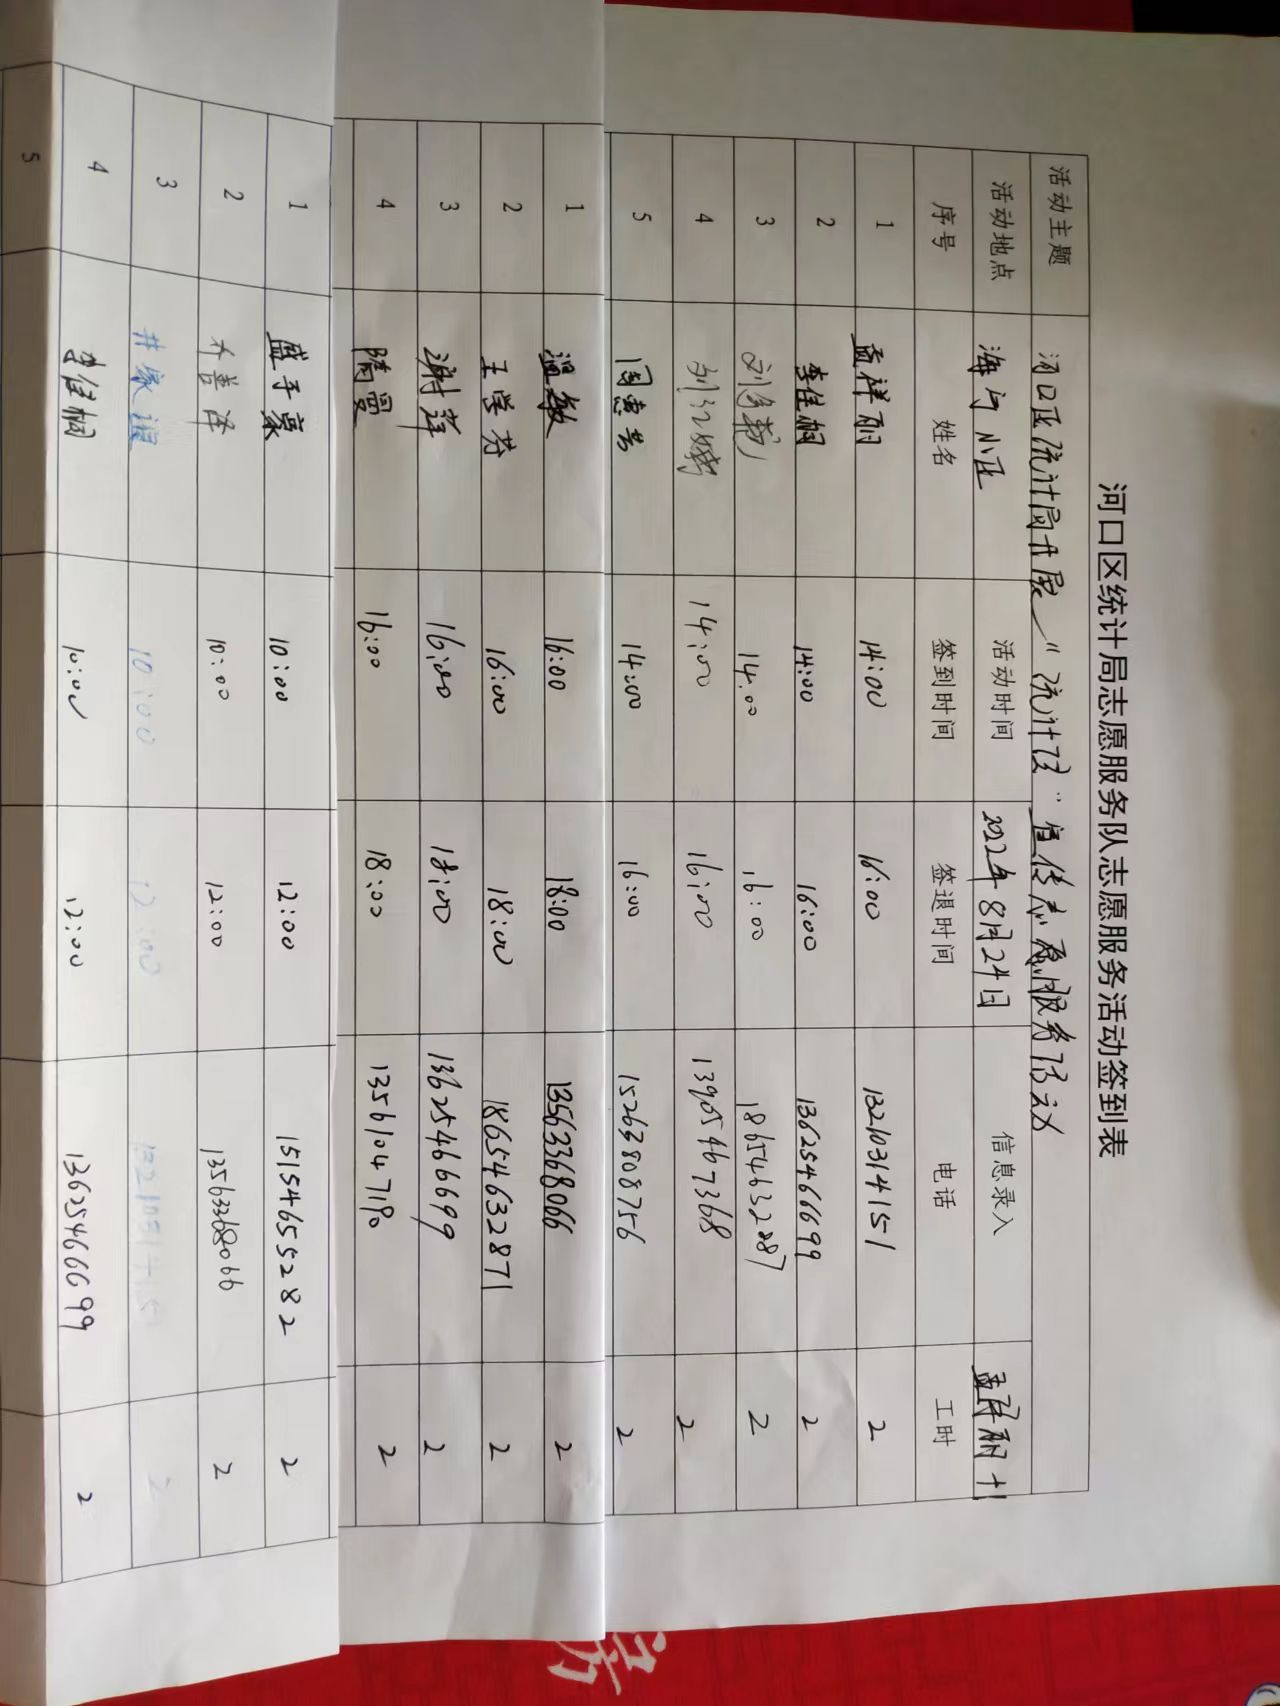 河口区统计局志愿服务队志愿服务活动签到表
活动主题 河口区统计局开展"统计法"宣传志愿服务活动
活动地点 海河小区 活动时间 2022年8月24日 信息录入 孟祥丽
序号 姓名 签到时间 签退时间 电话 工时
1 孟祥丽 14:00 16:00 13210314151 2
2 李佳桐 14:00 16:00 13625466699 2
3 14:00 16:00 18654632287 2
4 14:00 16:00 13905467368 2
5 14:00 16:00 15263808756 2
1 温敏 16:00 18:00 13563368066 2
2 王学芬 16:00 18:00 18654632871 2
3 谢萍 16:00 18:00 13625466699 2
4 隋雯 16:00 18:00 13561047190 2
1 盛子豪 10:00 12:00 15154655282 2
2 乔善泽 10:00 12:00 13563368066 2
3 井家谊 10:00 12:00 13210314151 2
4 李佳桐 10:00 12:00 13625466699 2
5